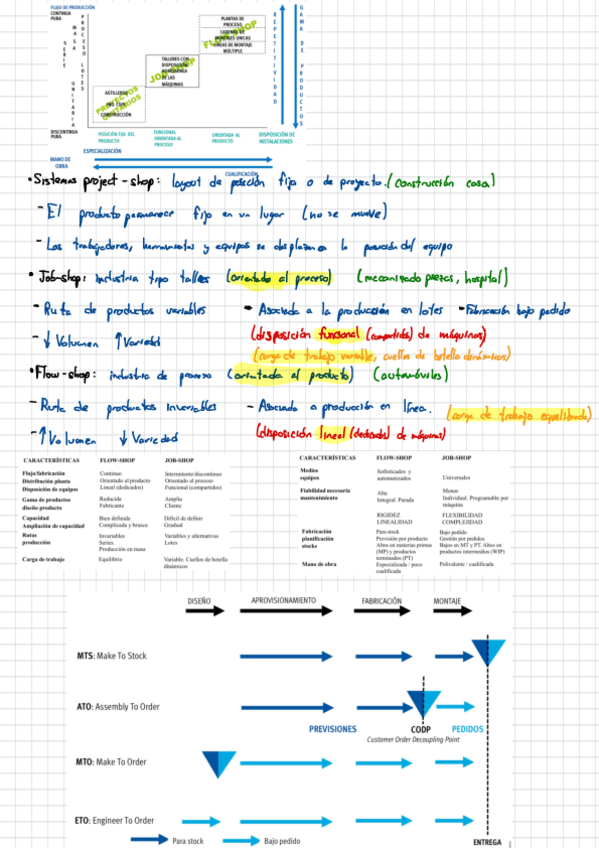 FLUJO DE PRODUCCIÓN
CONTINUA
PURA
PROCESO LOTES
MASA
SERIE
UNITARIA
DISCONTINUA
PURA
PLANTAS DE
PROCESO
CADENAS DE
LÍNEAS DE MONTAJE
MÚLTIPLE
FLOW-SHOP
TALLERES CON
DISPOSICIÓN
DE LAS
MÁQUINAS
JOB-SHOP
ASTILLEROS
ING. CIVIL
CONSTRUCCIÓN
PROYECTOS
UNITARIOS
REPETITIVIDAD
GAMA DE PRODUCTOS
POSICIÓN FIJA DEL
PRODUCTO
FUNCIONAL
ORIENTADA AL
PROCESO
ORIENTADA AL
PRODUCTO
DISPOSICIÓN DE
INSTALACIONES
ESPECIALIZACIÓN
MANO DE
OBRA
CUALIFICACIÓN
• Sistemas project-shop: layout de posición fija o de proyecto. (construcción casa)
- El producto permanece fijo en un lugar (no se mueve)
- Los trabajadores, herramientas y equipos se desplazan a la posición del equipo
• Job-shop: industria tipo taller (orientado al proceso) (mecanizado piezas, hospital)
- Ruta de productos variables - Asociada a la producción en lotes - Fabricación bajo pedido
- ↓ Volumen ↑ Variedad (disposición funcional (compartida) de máquinas)
(carga de trabajo variable, cuellos de botella dinámicos)
• Flow-shop: industria de proceso (orientada al producto) (automóviles)
- Ruta de productos invariables - Asociado a producción en línea. (carga de trabajo equilibrada)
- ↑ Volumen ↓ Variedad (disposición lineal (dedicada) de máquinas)
CARACTERÍSTICAS FLOW-SHOP JOB-SHOP
Flujo/fabricación Continuo Intermitente/discontinuo
Distribución planta Orientado al producto Orientado al proceso
Disposición de equipos Lineal (dedicados) Funcional (compartidos)
Gama de productos Reducida Amplia
diseño producto Fabricante Cliente
Capacidad Bien definida Difícil de definir
Ampliación de capacidad Complicada y brusca Gradual
Rutas Invariables Variables y alternativas
producción Series. Lotes
Producción en masa
Carga de trabajo Equilibrio Variable. Cuellos de botella
dinámicos
CARACTERÍSTICAS FLOW-SHOP JOB-SHOP
Medios Sofisticados y
equipos automatizados Universales
Fiabilidad necesaria Alta Menor
mantenimiento Integral. Parada Individual. Programable por
máquina
RIGIDEZ FLEXIBILIDAD
LINEALIDAD COMPLEJIDAD
Fabricación Para stock Bajo pedido
planificación Previsión por producto Gestión por pedidos
stocks Altos en materias primas Bajos en MT y PT. Altos en
(MP) y productos productos intermedios (WIP)
terminados (PT)
Mano de obra Especializada / poco Polivalente / cualificada
cualificada
DISEÑO APROVISIONAMIENTO FABRICACIÓN MONTAJE
MTS: Make To Stock
ATO: Assembly To Order
PREVISIONES CODP PEDIDOS
Customer Order Decoupling Point
MTO: Make To Order
ETO: Engineer To Order
Para stock Bajo pedido ENTREGA